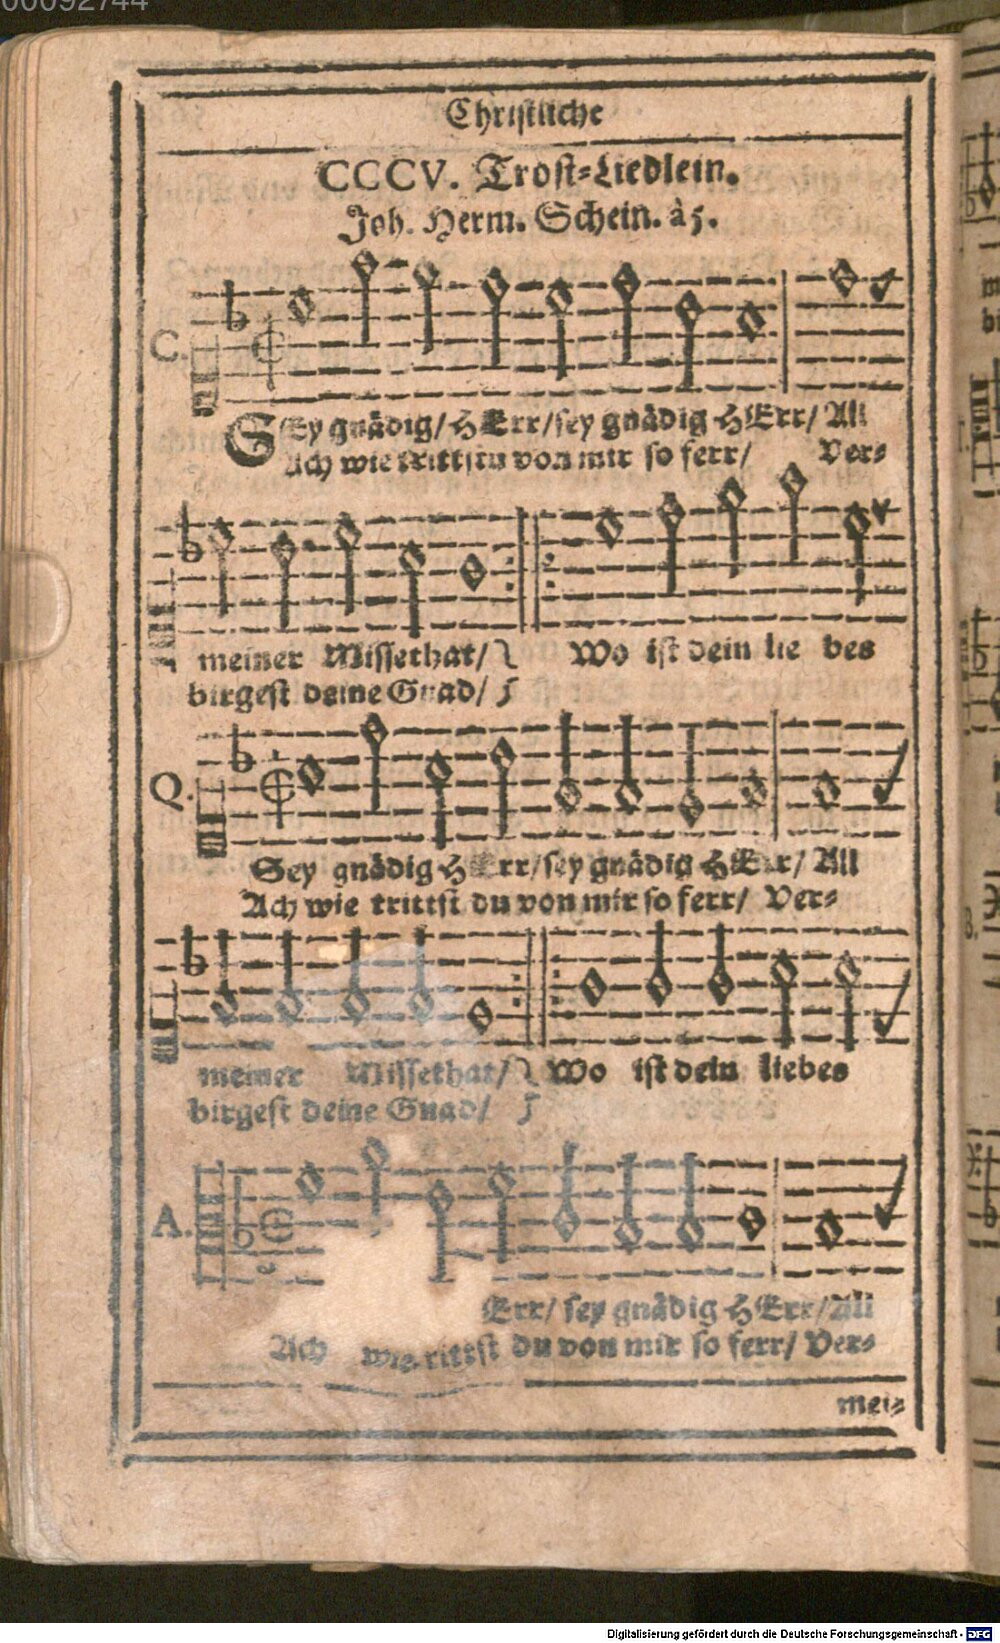 00092744
Christliche
CCCV. Trost-Liedlein.
Joh. Herm. Schein. à 5.
C.
SEy gnädig/ HErr/ sey gnädig HErr/ All
Ach wie trittstu von mir so ferr/ Ver-
meiner Missethat/
Wo ist dein lie bes
birgest deine Gnad/
Q.
Sey gnädig HErr/ sey gnädig HErr/ All
Ach wie trittst du von mir so ferr/ Ver-
meiner Missethat/ Wo ist dein liebes
birgest deine Gnad/
A.
Err/ sey gnädig HErr/ All
Ach wie rittst du von mir so ferr/ Ver-
mei-
Digitalisierung gefördert durch die Deutsche Forschungsgemeinschaft - DFG